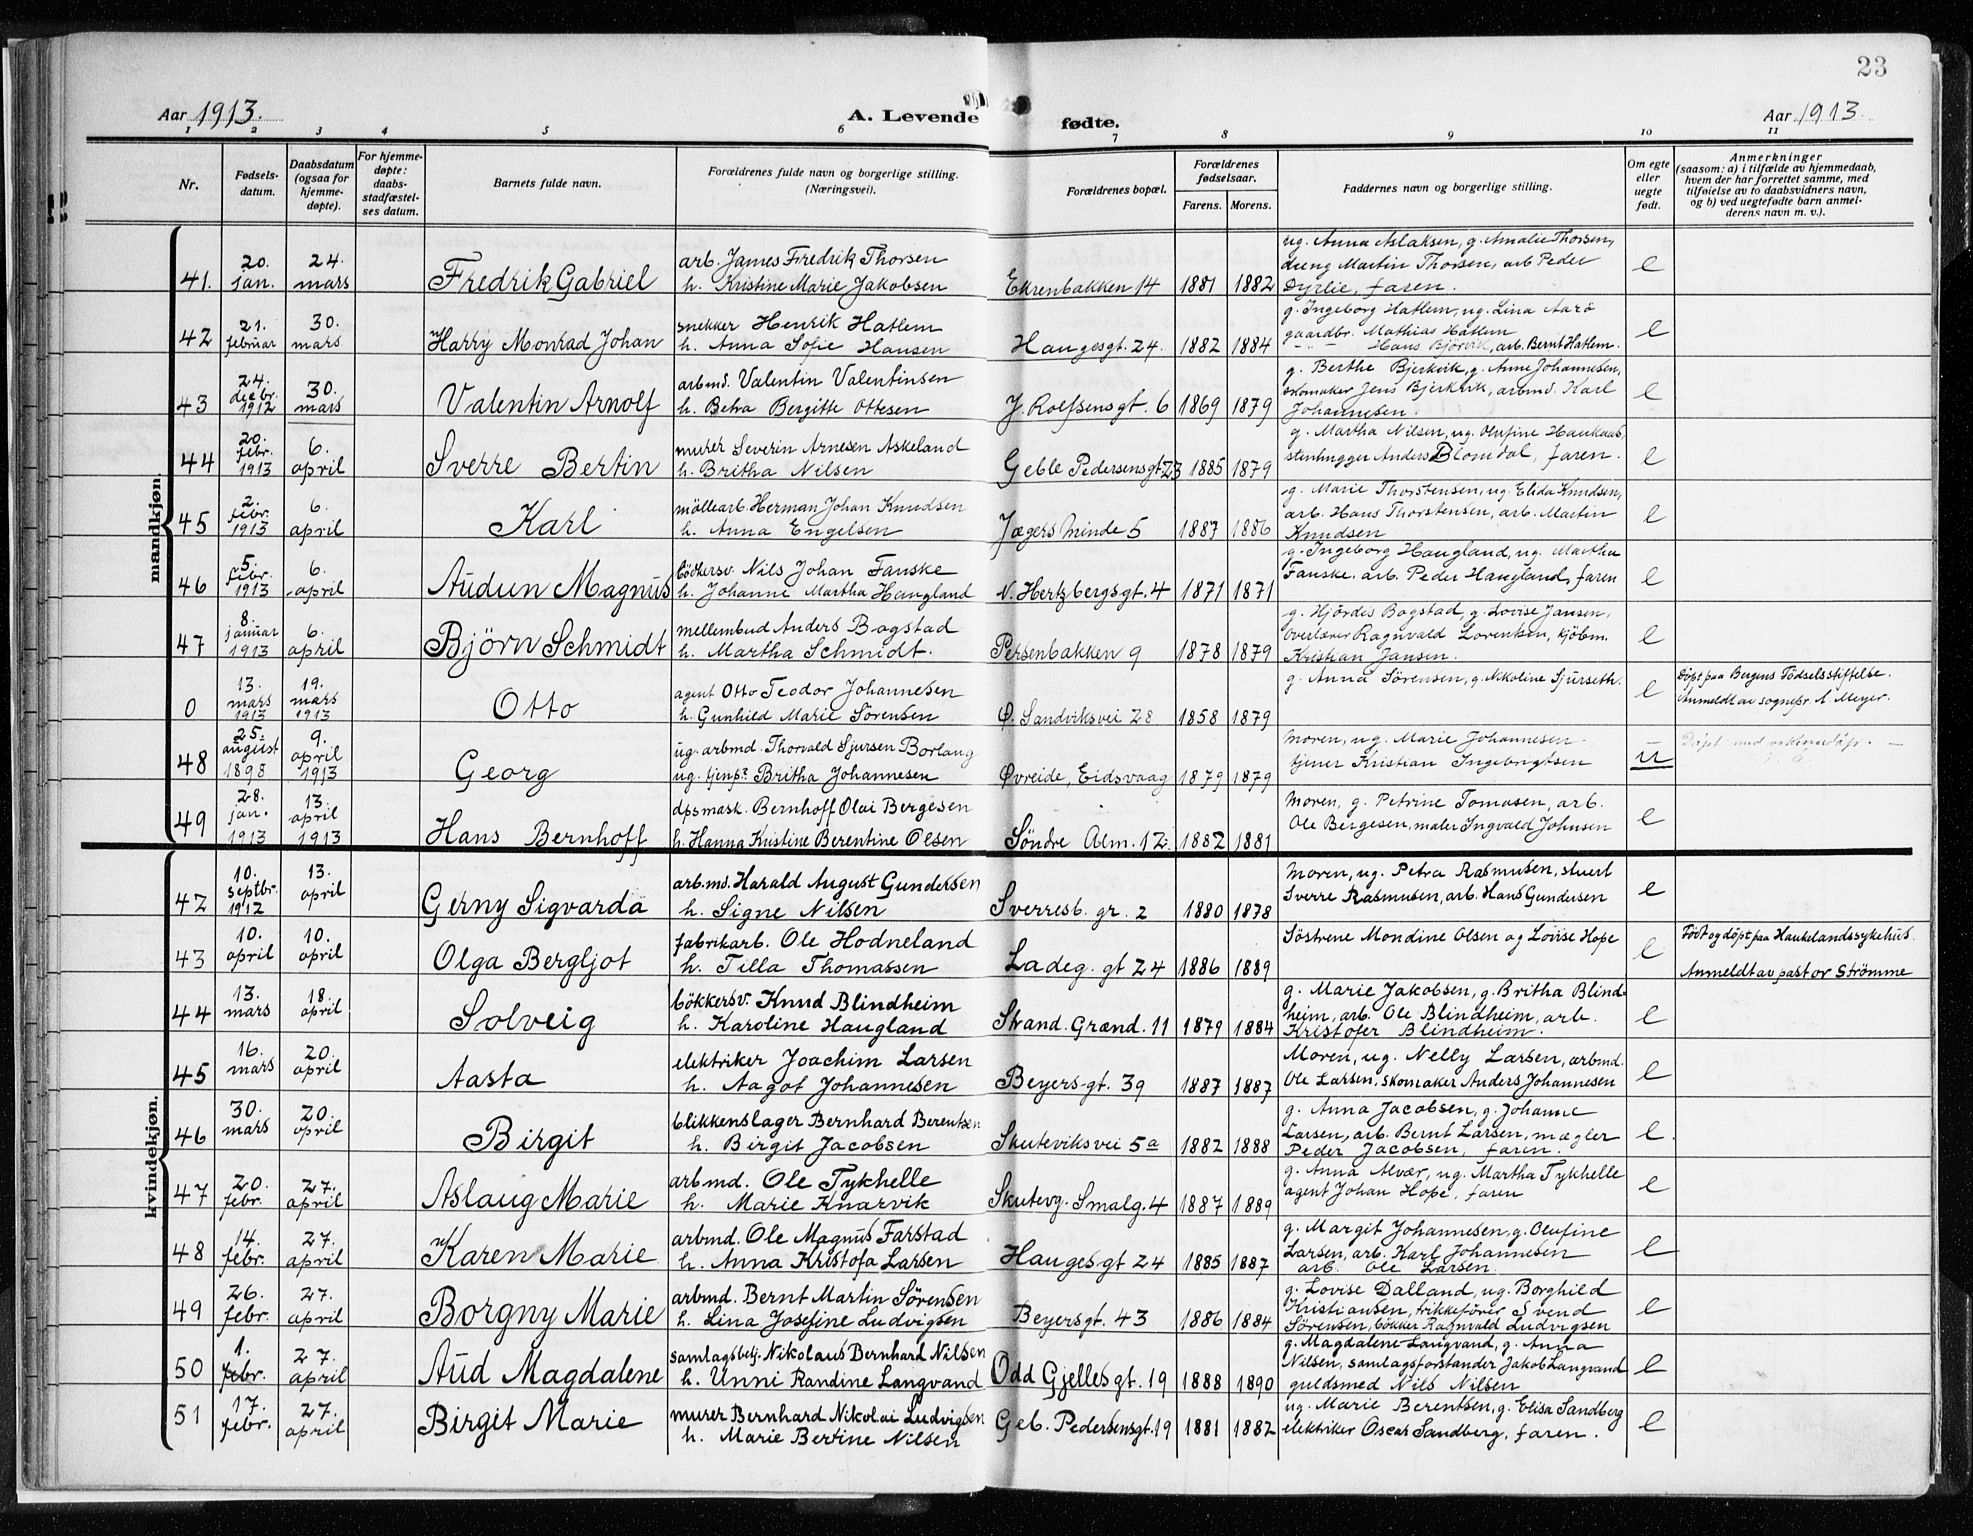 23
Aar 1913.
A. Levende fødte.
Aar 1913.
1 2 3 4 5 6 7 8 9 10 11
Nr.
Fødsels-
datum.
Daabsdatum
(ogsaa for
hjemme-
døpte).
For hjemme-
døpte:
daabs-
stadfæstel-
ses datum.
Barnets fulde navn.
Forældrenes fulde navn og borgerlige stilling.
(Næringsvei).
Forældrenes bopæl.
Forældrenes
fødselsaar.
Farens. Morens.
Faddernes navn og borgerlige stilling.
Om egte
eller
uegte
født.
Anmerkninger
(saasom: a) i tilfælde av hjemmedaab,
hvem der har forrettet samme, med
tilføielse av to daabsvidners navn,
og b) ved uegtefødte barn anmel-
derens navn m. v.).
mandkjøn.
41. 20. jan. 24. mars Fredrik Gabriel
arb. James Fredrik Thorsen
h. Kristine Marie Jakobsen
Ekrenbakken 14 1881 1882
ug. Anna Aslaksen, g. Amalie Thorsen,
dreng Martin Thorsen, arb Peder
Dyrlie, faren.
e
42 21. februar 30. mars Harry Monrad Johan
snekker Henrik Hatlem
h. Anna Sofie Hansen
Haugesgt. 24. 1882 1884
g. Ingeborg Hatlem, ug. Lina Aarö
gaardbr. Mathias Hatlem
– " – Hans Björvik, arb. Bernt Hatlem.
e
43 24. decbr. 1912 30. mars Valentin Arnolf
arbmd. Valentin Valentinsen
h. Betra Bergitte Ottesen
J. Rolfsensgt. 6 1869 1879
g. Berthe Bjerkvik, g. Anne Johannesen,
skomaker Jens Bjerkvik, arbmd. Karl
Johannesen.
e
44 20. febr. 1913 6. april Sverre Bertin
murer Severin Arnesen Askeland
h. Britha Nilsen
Geble Pedersensgt 23 1885 1879
g. Martha Nilsen, ug. Olufine Haukaas,
stenhugger Anders Blomdal, faren.
e
45 2. febr. 1913 6. april Karl
möllearb. Herman Johan Knudsen
h. Anna Engelsen
Jægers Minde 5 1887 1886
g. Marie Thorstensen, ug. Elida Knudsen,
arb. Hans Thorstensen, arb. Martin
Knudsen
e
46 5. febr. 1913 6. april Audun Magnus
bödkersv. Nils Johan Fanske
h. Johanne Martha Haugland
N. Hertzbergsgt. 4 1871 1871
g. Ingeborg Haugland, ug. Martha
Fanske, arb. Peder Haugland, faren
e
47 8. januar 1913 6. april Björn Schmidt
mellembud Anders Bogstad
h. Martha Schmidt.
Persenbakken 9 1878 1879
g. Hjördis Bogstad, g. Lovise Jansen,
overlærer Ragnvald Lorentsen, kjöbm.
Kristian Jansen.
e
0 13. mars 1913 19. mars 1913 Otto
agent Otto Teodor Johannesen
h. Gunhild Marie Sörensen
Ø. Sandviksvei 28 1858 1879
g. Anna Sörensen, g. Nikoline Sjurseth.
e
Döpt paa Bergens Födselsstiftelse.
Anmeldt av sognepr. A Meyer.
48 25. august 1898 9. april 1913 Georg
ug. arbmd. Thorvald Sjursen Borlaug
ug. tjenp. Britha Johannesen
Øvreide, Eidsvaag 1879 1879
Moren, ug. Marie Johannesen.
tjener Kristian Ingebrigtsen
u
Döpt med
49 28. jan. 1913 13. april 1913 Hans Bernhoff
dpsmask. Bernhoff Olai Bergesen
h. Hanna Kristine Berentine Olsen
Söndre Alm. 12. 1882 1881
Moren, g. Petrine Tomasen, arb.
Ole Bergesen, maler Ingvald Johnsen
e
kvindekjøn.
42 10. septbr. 1912 13. april Gerny Sigvarda
arb.md. Harald August Gundersen
h. Signe Nilsen
Sverresb. gr. 2 1880 1878
Moren, ug. Petra Rasmusen, stuert
Sverre Rasmusen, arb. Hans Gundersen
e
43 10. april 10. april Olga Bergljot
fabrikarb. Ole Hodneland
h. Tilla Thomassen
Ladeg. gt 24 1886 1889
Söstrene Mondine Olsen og Lovise Hope
e
Födt og döpt paa Haukelandssykehus.
Anmeldt av pastor Strömme
44 13. mars 18. april Solveig
bökkersv. Knud Blindheim
h. Karoline Haugland
Strand. Grænd. 11 1879 1884
g. Marie Jakobsen, g. Britha Blind-
heim, arb. Ole Blindheim, arb.
Kristofer Blindheim.
e
45 16. mars 20. april Aasta
elektriker Joachim Larsen
h. Aagot Johannesen
Beyers-gt. 39 1887 1887
Moren, ug. Nelly Larsen, arbmd.
Ole Larsen, skomaker Anders Johannesen
e
46 30. mars 20. april Birgit
blikkenslager Bernhard Berentsen
h. Birgit Jacobsen
Skuteviksvei 5a 1882 1888
g. Anna Jacobsen, g. Johanne
Larsen, arb. Bernt Larsen, mægler
Peder Jacobsen, faren.
e.
47 20. febr. 27. april Aslaug Marie
arbmd. Ole Tykhelle
h. Marie Knarvik
Skutevg. Smalg. 4 1887 1889
g. Anna Alvær, ug. Martha Tykhelle
agent Johan Hope, faren
e
48 14. febr. 27. april Karen Marie
arbmd. Ole Magnus Farstad
h. Anna Kristofa Larsen
Hauges-gt 24 1885 1887
g. Margit Johannesen, g. Olufine
Larsen, arb. Karl Johannesen
arb. Ole Larsen.
e
49 26. febr. 27. april Borgny Marie
arbmd. Bernt Martin Sörensen
h. Lina Josefine Ludvigsen
Beyersgt. 43 1886 1884
g. Lovise Dalland, ug. Borghild
Kristiansen, trikkeförer Svend
Sörensen, bökker Ragnvald Ludvigsen
e
50 1. febr. 27. april Aud Magdalene
samlagsbetj. Nikolaus Bernhard Nilsen
h. Unni Randine Langvand
Odd Gjellesgt. 19 1888 1890
g. Magdalene Langvand, g. Anna
Nilsen, samlagsforstander Jakob Langvand
guldsmed Nils Nilsen
e
51 17. febr. 27. april Birgit Marie
murer Bernhard Nikolai Ludvigsen
h. Marie Bertine Nilsen
Geb. Pedersensgt. 19 1881 1882
ug. Marie Berentsen, g. Elisa Sandberg
elektriker Oscar Sandberg, faren.
e